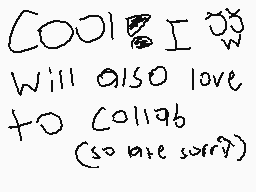 COOl! I
Will also love
to collab
(so late sorry)